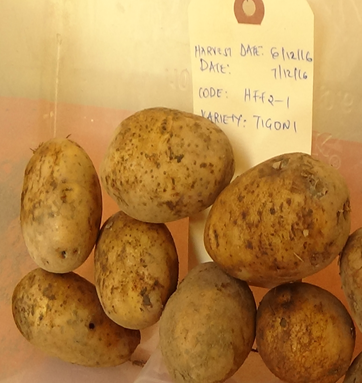 HARVEST DATE: 6/12/16
DATE: 7/12/16
CODE: HFF2-1
VARIETY: TIGONI